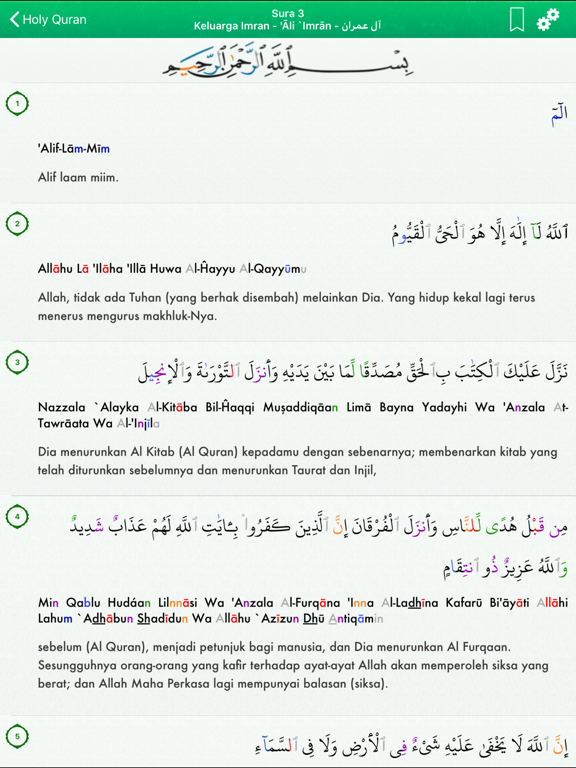 Holy Quran
Sura 3
Keluarga Imran - 'Āli `Imrān - آل عمران
بِسْمِ ٱللَّهِ ٱلرَّحْمَٰنِ ٱلرَّحِيمِ
1
الٓمٓ
'Alif-Lām-Mīm
Alif laam miim.
2
ٱللَّهُ لَآ إِلَٰهَ إِلَّا هُوَ ٱلْحَىُّ ٱلْقَيُّومُ
Allāhu Lā 'Ilāha 'Illā Huwa Al-Ĥayyu Al-Qayyūmu
Allah, tidak ada Tuhan (yang berhak disembah) melainkan Dia. Yang hidup kekal lagi terus
menerus mengurus makhluk-Nya.
3
نَزَّلَ عَلَيْكَ ٱلْكِتَٰبَ بِٱلْحَقِّ مُصَدِّقًا لِّمَا بَيْنَ يَدَيْهِ وَأَنزَلَ ٱلتَّوْرَىٰةَ وَٱلْإِنجِيلَ
Nazzala `Alayka Al-Kitāba Bil-Ĥaqqi Muşaddiqāan Limā Bayna Yadayhi Wa 'Anzala At-
Tawrāata Wa Al-'Injīla
Dia menurunkan Al Kitab (Al Quran) kepadamu dengan sebenarnya; membenarkan kitab yang
telah diturunkan sebelumnya dan menurunkan Taurat dan Injil,
4
مِن قَبْلُ هُدًى لِّلنَّاسِ وَأَنزَلَ ٱلْفُرْقَانَ إِنَّ ٱلَّذِينَ كَفَرُوا۟ بِـَٔايَٰتِ ٱللَّهِ لَهُمْ عَذَابٌ شَدِيدٌ
وَٱللَّهُ عَزِيزٌ ذُو ٱنتِقَامٍ
Min Qablu Hudáan Lilnnāsi Wa 'Anzala Al-Furqāna 'Inna Al-Ladhīna Kafarū Bi'āyāti Allāhi
Lahum `Adhābun Shadīdun Wa Allāhu `Azīzun Dhū Antiqāmin
sebelum (Al Quran), menjadi petunjuk bagi manusia, dan Dia menurunkan Al Furqaan.
Sesungguhnya orang-orang yang kafir terhadap ayat-ayat Allah akan memperoleh siksa yang
berat; dan Allah Maha Perkasa lagi mempunyai balasan (siksa).
5
إِنَّ ٱللَّهَ لَا يَخْفَىٰ عَلَيْهِ شَىْءٌ فِى ٱلْأَرْضِ وَلَا فِى ٱلسَّمَآءِ